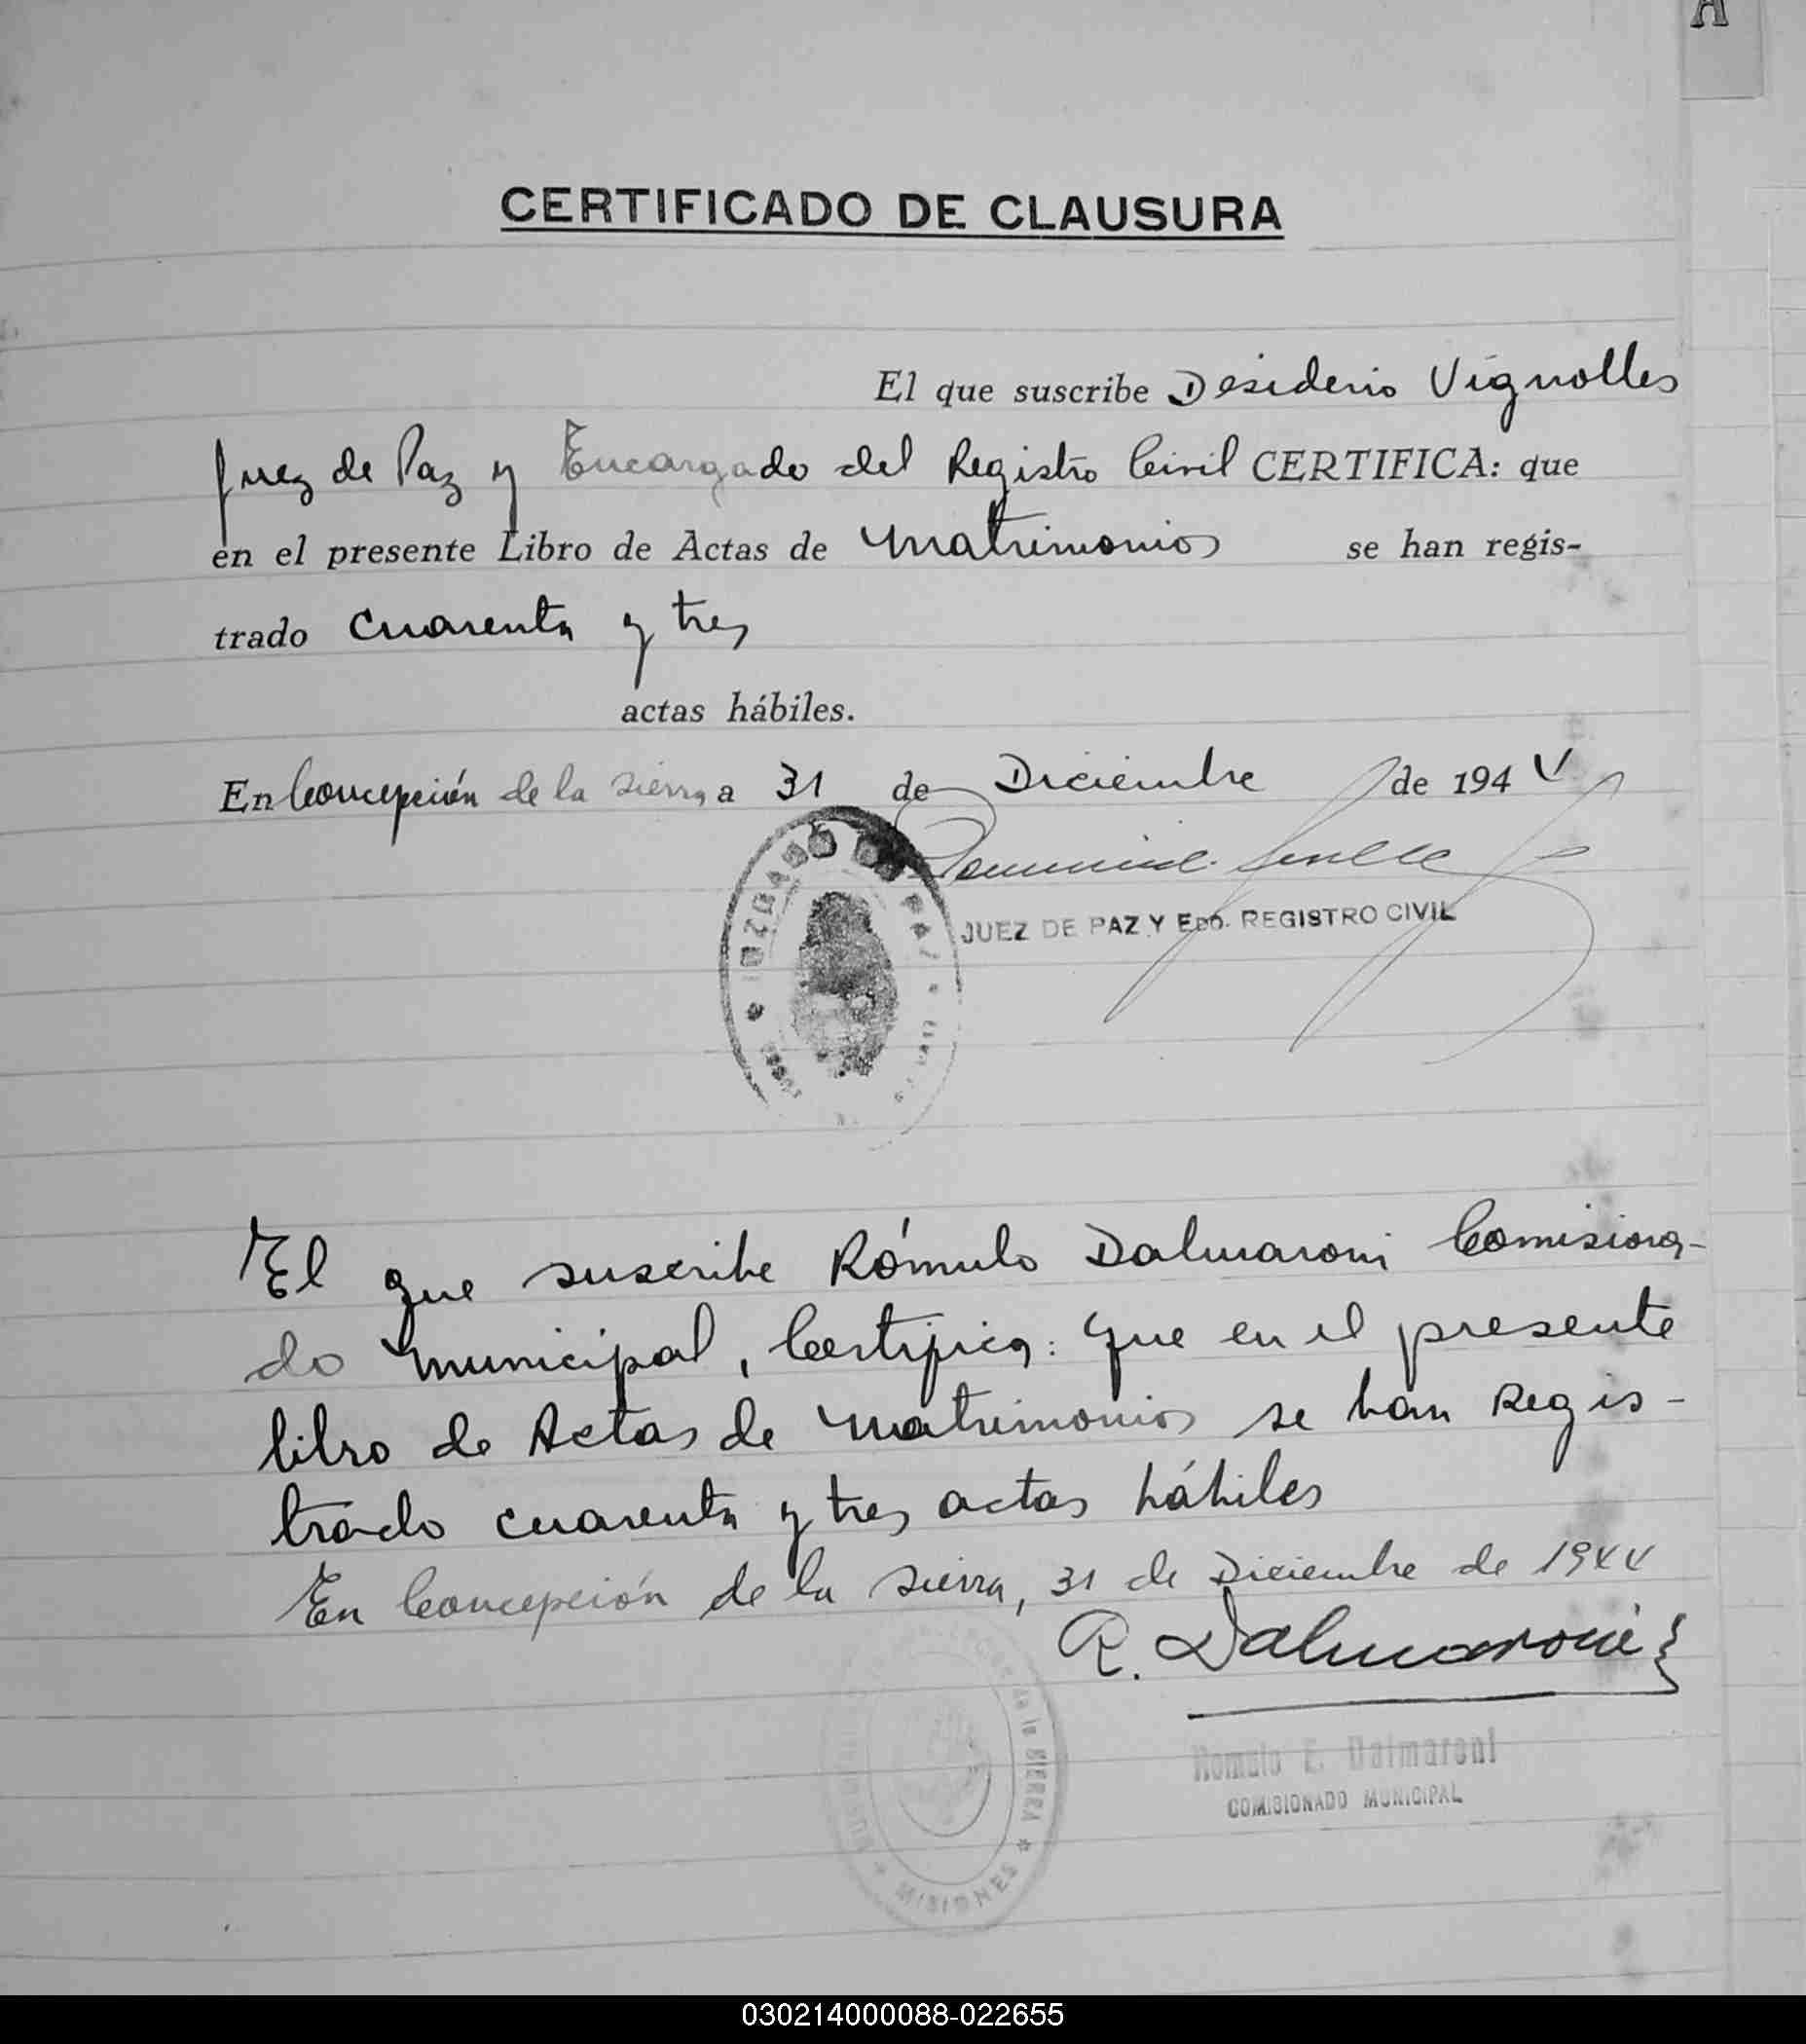 A
CERTIFICADO DE CLAUSURA
El que suscribe Desiderio Vignolles
Juez de Paz y Encargado del Registro Civil CERTIFICA: que
en el presente Libro de Actas de Matrimonios se han regis-
trado Cuarenta y tres
actas hábiles.
En Concepción de la Sierra a 31 de Diciembre de 1944
JUZGADO DE PAZ
JUEZ DE PAZ Y EDO. REGISTRO CIVIL
El que suscribe Rómulo Dalmaroni Comisiona-
do Municipal, Certifica: que en el presente
libro de Actas de Matrimonios se han Regis-
trado cuarenta y tres actas hábiles
En Concepción de la Sierra, 31 de Diciembre de 1944
R. Dalmaroni
de la SIERRA * MISIONES *
Romulo E. Dalmaroni
COMISIONADO MUNICIPAL
030214000088-022655